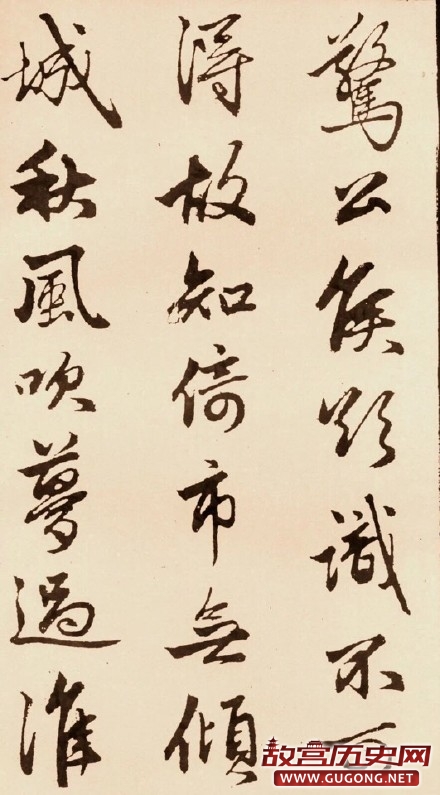 驚公侯欲識不可
得故知倚市無傾
城秋風吹夢過淮
故宫历史网
WWW.GUGONG.NET